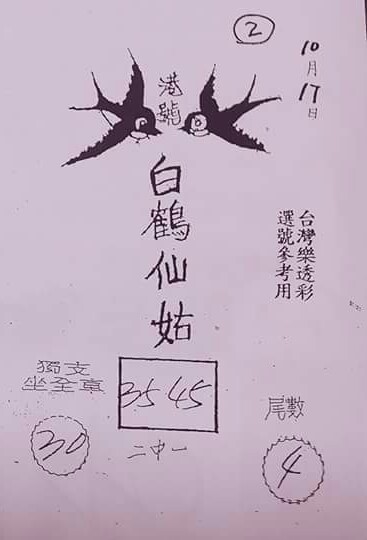 2
10月17日
港號
白鶴仙姑
台灣樂透彩
選號參考用
獨支
坐全車
30
35 45
二中一
尾數
4